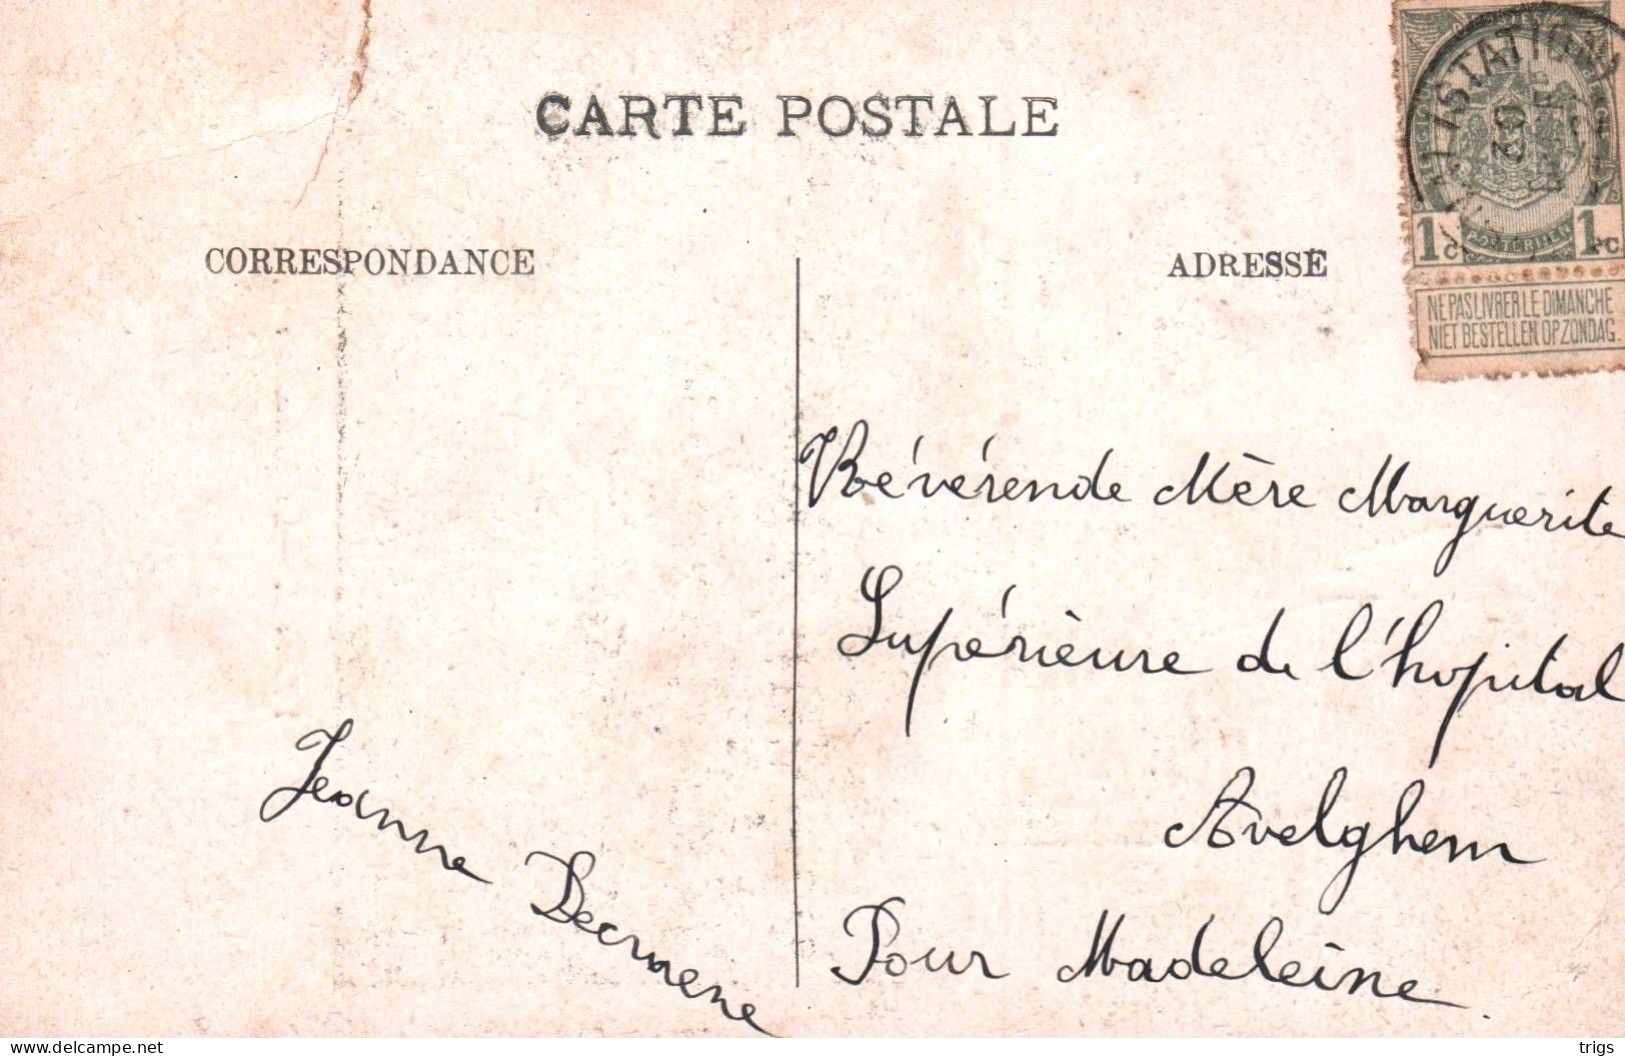 CARTE POSTALE
CORRESPONDANCE
ADRESSE
1c 1c
NE PAS LIVRER LE DIMANCHE
NIET BESTELLEN OP ZONDAG.
Révérende Mère Marguerite
Supérieure de l'hopital
Avelghem
Pour Madeleine.
Jeanne Decraene
delcampe.net
trigs